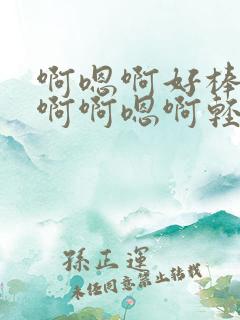 啊嗯啊好棒
啊啊嗯啊轻
孫正運
未经同意禁止转载